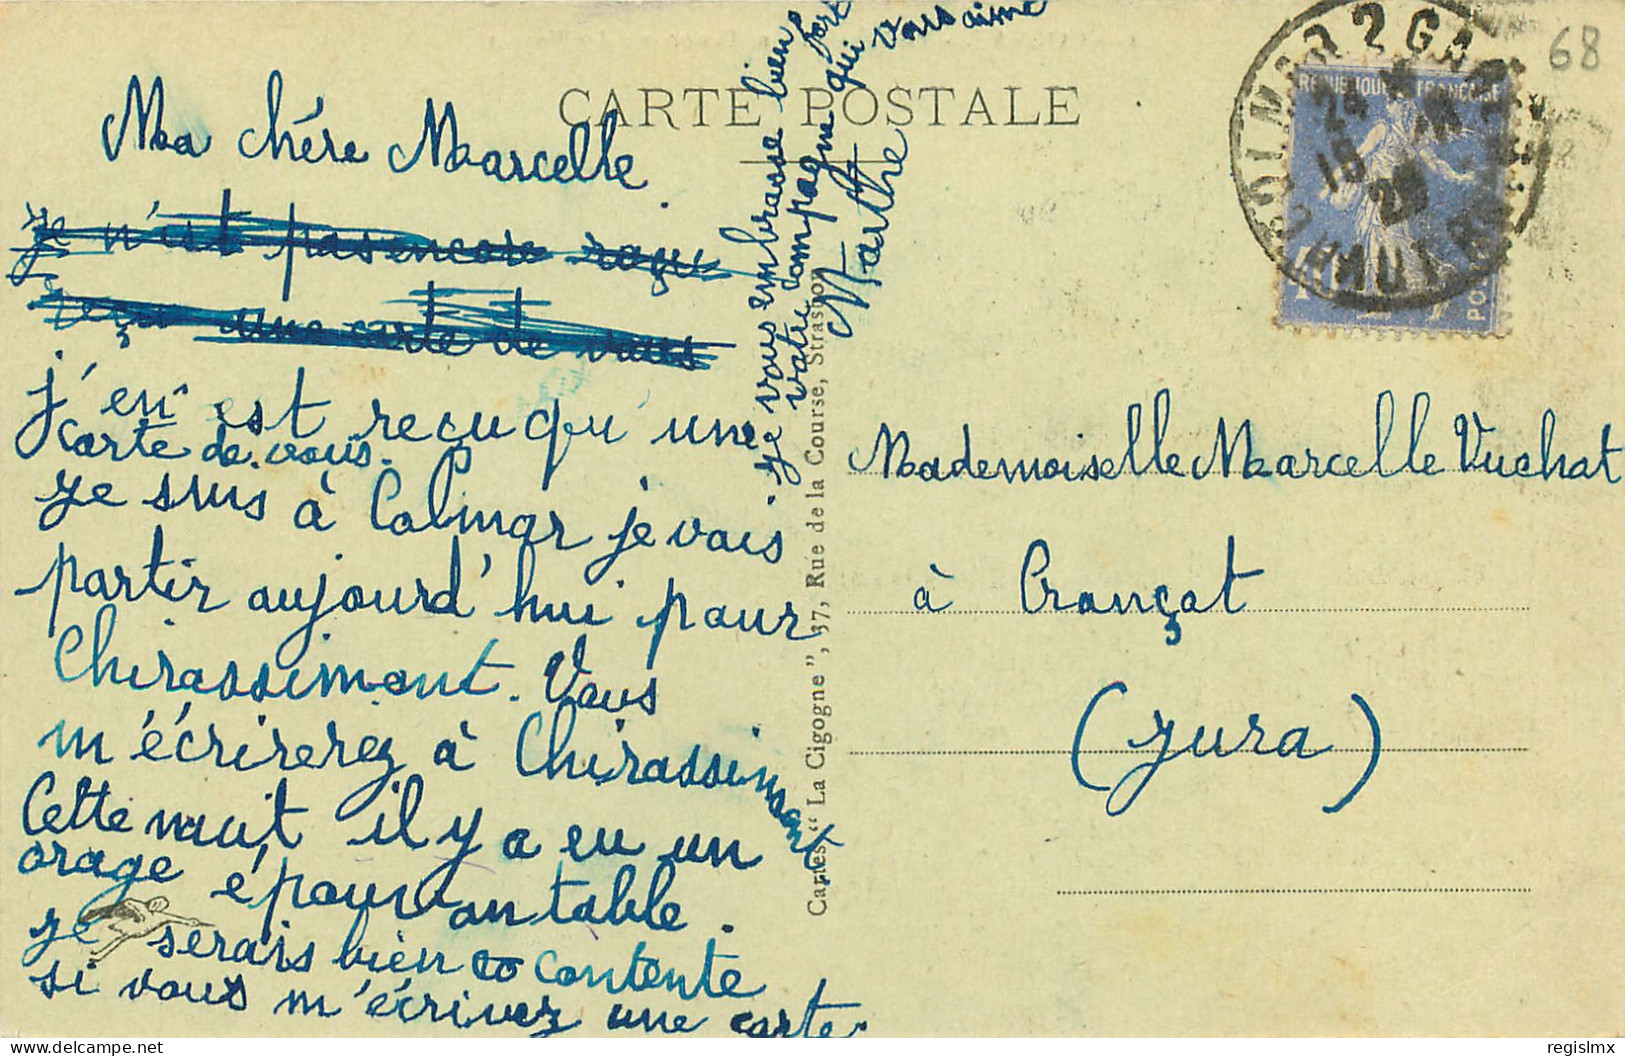 CARTE POSTALE
68
Ma chére Marcelle
je n'est pas encore
reçu une carte de vous
j'en est recu qu'une
carte de vous.
Je suis à Colmar je vais
partir aujourd'hui pour
Chirassimont. Vous
m'écrirerez à Chirassimont.
Cette nuit il y a eu un
orage épouvantable.
Je serais bien contente
si vous m'écrivez une carte.
je vous embrasse bien fort
votre compagne qui vous aime
Marthe
Cartes "La Cigogne", 37, Rue de la Course, Strasbourg
REPUBLIQUE FRANÇAISE
POSTES
COLMAR 2 GARE
HAUT RHIN
Mademoiselle Marcelle Vuchat
à Crançot
(Jura)
regislmx
delcampe.net